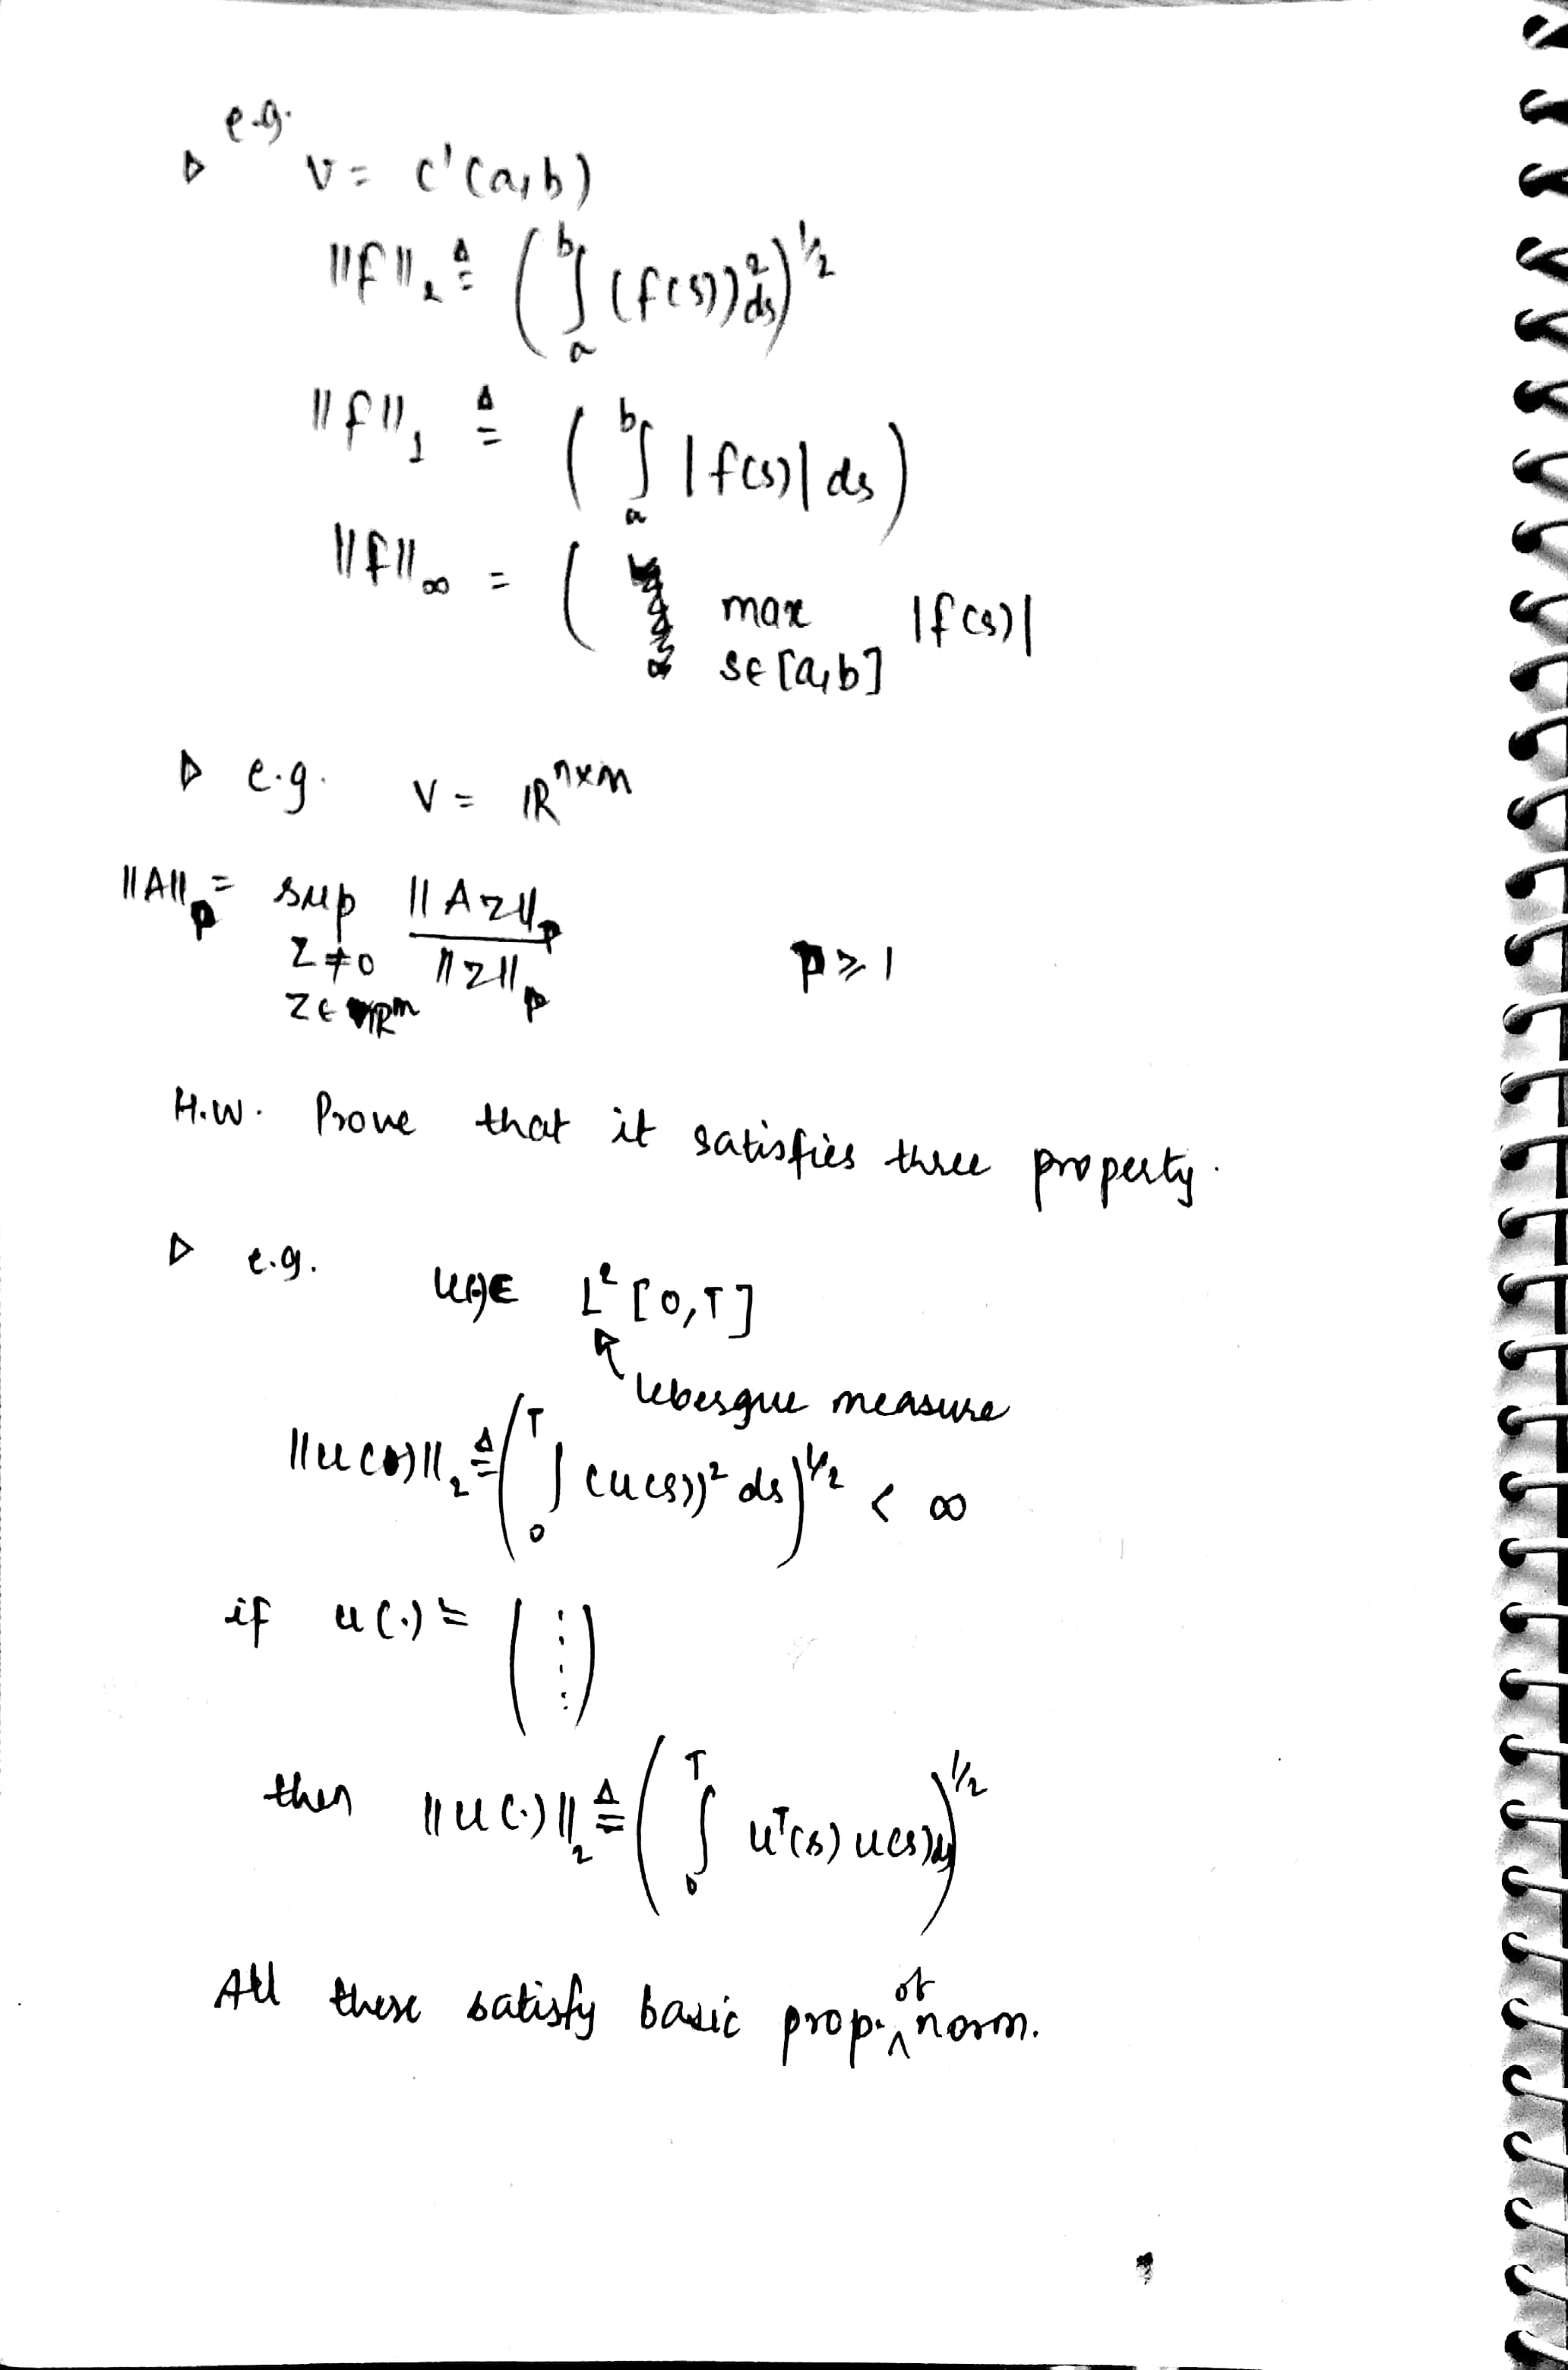 ▷ e.g. V = C'(a,b)
||f||₂ ≜ ( ∫ₐᵇ (f(s))² ds )^{1/2}
||f||₁ ≜ ( ∫ₐᵇ |f(s)| ds )
||f||∞ = ( max |f(s)|
s∈[a,b]
▷ e.g. V = ℝ^{n×m}
||A||ₚ = sup ||Az||ₚ / ||z||ₚ p ≥ 1
z ≠ 0
z ∈ ℝᵐ
H.W. Prove that it satisfies three property.
▷ e.g. u(·)∈ L²[0,T]
↖ lebesgue measure
||u(·)||₂ ≜ ( ∫₀ᵀ (u(s))² ds )^{1/2} < ∞
if u(·) = ( ⋮ )
then ||u(·)||₂ ≜ ( ∫₀ᵀ uᵀ(s) u(s) ds )^{1/2}
All these satisfy basic prop. of norm.